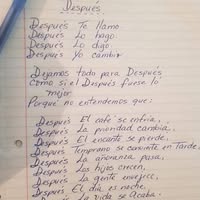 Después
Después Te llamo
Después Lo hago
Después Lo digo
Después Yo cambio
Dejamos todo para Después
como si el Después fuese lo
mejor
Porque no entendemos que:
Después El café se enfría,
Después La prioridad cambia,
Después El encanto se pierde,
Después Temprano se convierte en Tarde,
Después La añoranza pasa,
Después Los hijos crecen,
Después La gente envejece,
Después El día es noche,
Después La vida se Acaba.